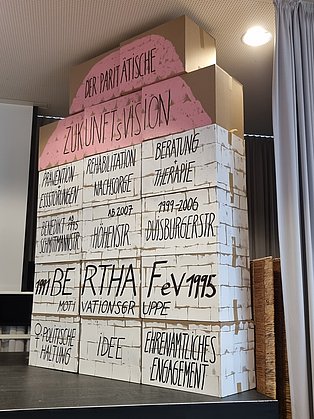 DER PARITÄTISCHE
ZUKUNFTsVISION
PRÄVENTION
ESSSTÖRUNGEN
REHABILITATION
NACHSORGE
BERATUNG
+
THERAPIE
BENEDIKT-
SCHMITTMANNSTR
AB 2007
HÖHESTR
1999-2006
DUISBURGERSTR
1991 BERTHA F eV 1995
MOTIVATIONSGRUPPE
♀ POLITISCHE
HALTUNG
IDEE
EHRENAMTLICHES
ENGAGEMENT